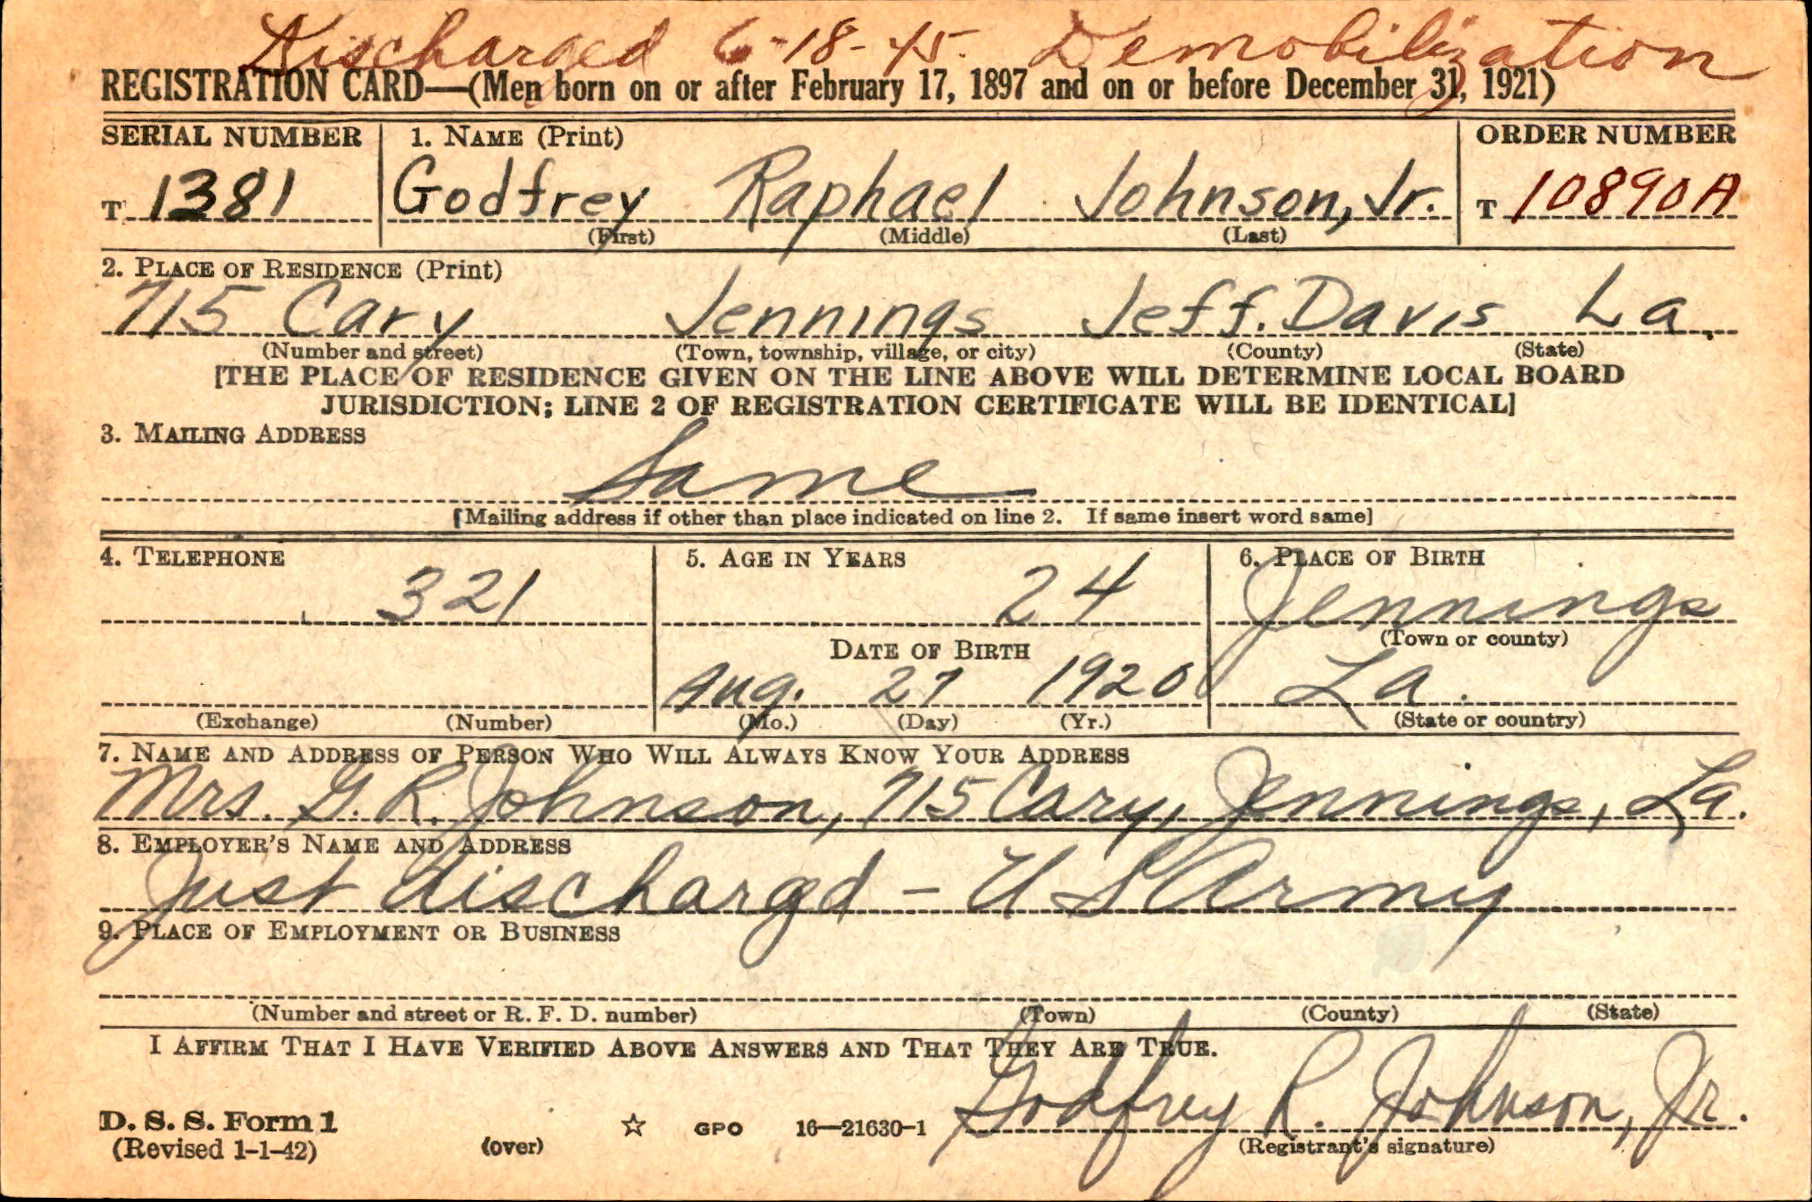 Discharged 6-18-45. Demobilization
REGISTRATION CARD—(Men born on or after February 17, 1897 and on or before December 31, 1921)
SERIAL NUMBER 1. NAME (Print) ORDER NUMBER
T 1381 Godfrey Raphael Johnson, Jr. T 10890A
(First) (Middle) (Last)
2. PLACE OF RESIDENCE (Print)
715 Cary Jennings Jeff. Davis La.
(Number and street) (Town, township, village, or city) (County) (State)
[THE PLACE OF RESIDENCE GIVEN ON THE LINE ABOVE WILL DETERMINE LOCAL BOARD
JURISDICTION; LINE 2 OF REGISTRATION CERTIFICATE WILL BE IDENTICAL]
3. MAILING ADDRESS
Same
[Mailing address if other than place indicated on line 2. If same insert word same]
4. TELEPHONE 5. AGE IN YEARS 6. PLACE OF BIRTH
321 24 Jennings
(Town or county)
DATE OF BIRTH
Aug. 27 1920 La.
(Exchange) (Number) (Mo.) (Day) (Yr.) (State or country)
7. NAME AND ADDRESS OF PERSON WHO WILL ALWAYS KNOW YOUR ADDRESS
Mrs. G. R. Johnson, 715 Cary, Jennings, La.
8. EMPLOYER'S NAME AND ADDRESS
Just dischargd - U S Army
9. PLACE OF EMPLOYMENT OR BUSINESS
(Number and street or R. F. D. number) (Town) (County) (State)
I AFFIRM THAT I HAVE VERIFIED ABOVE ANSWERS AND THAT THEY ARE TRUE.
Godfrey R. Johnson, Jr.
D. S. S. Form 1
(Revised 1-1-42) (over) ☆ GPO 16—21630-1 (Registrant's signature)